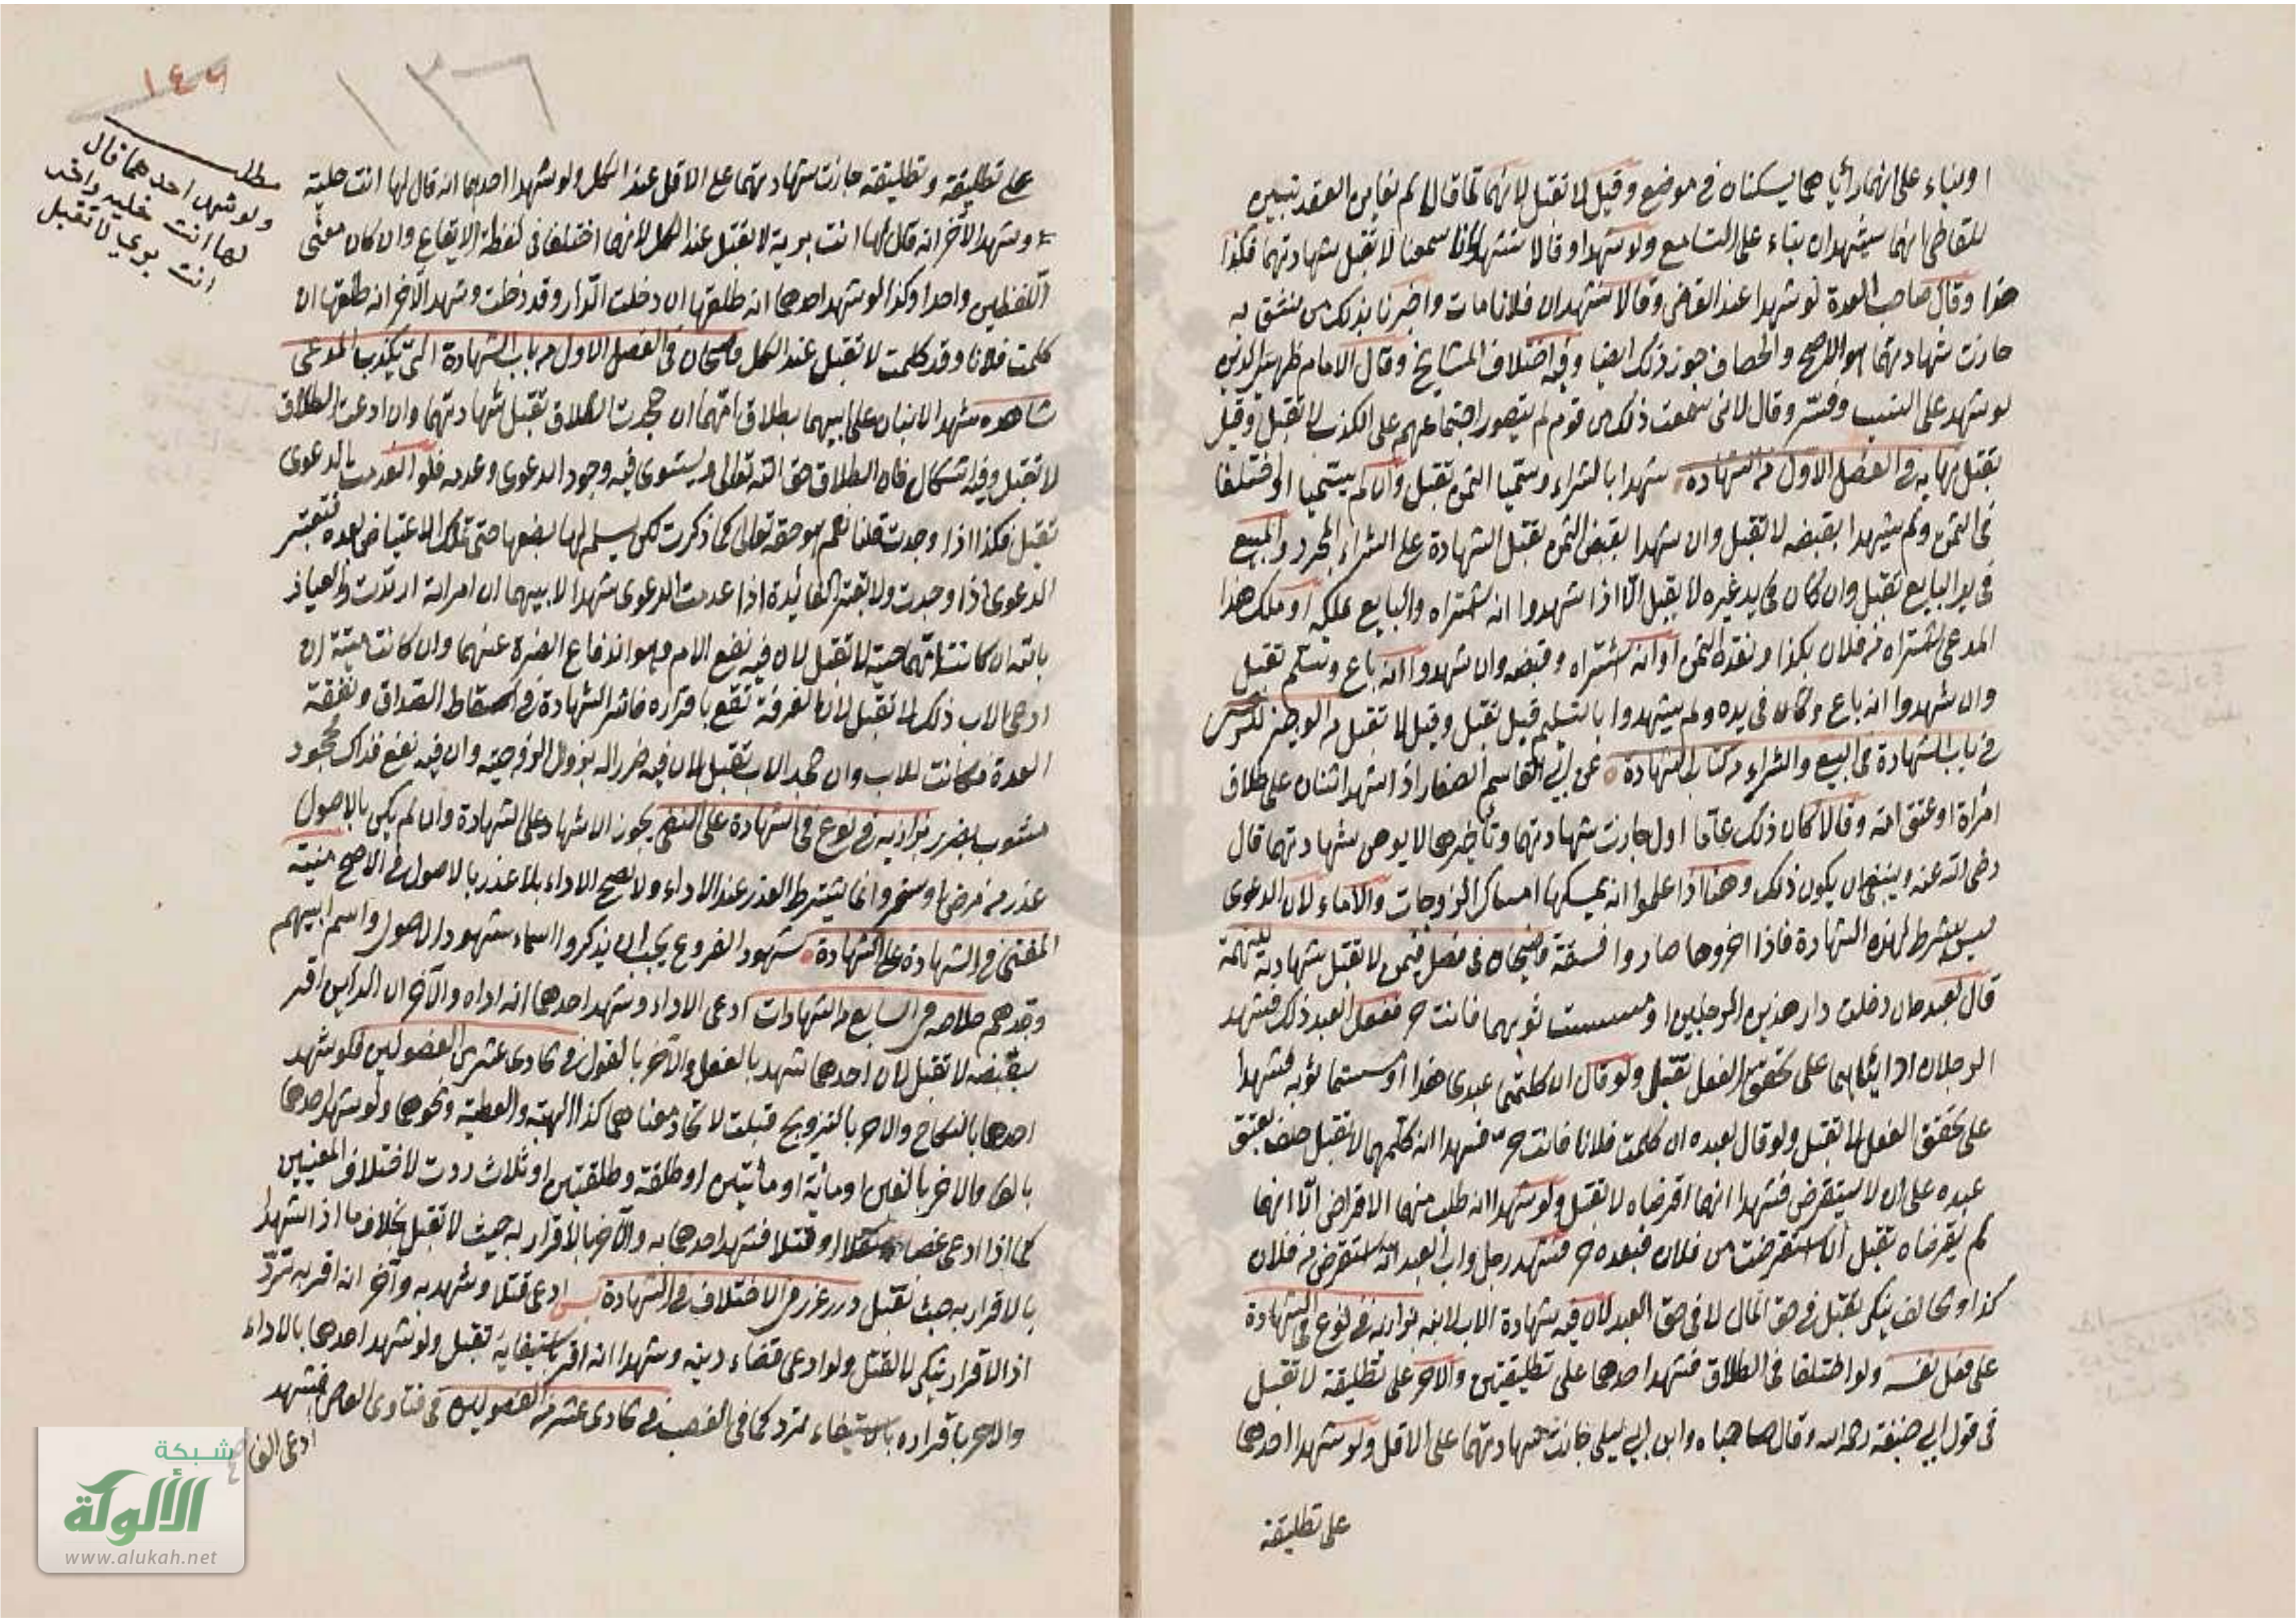 او بناء على انهما رأياهما يسكنان في موضع وقيل لا تقبل لانهما لما قالا لم نعاين العقد تبين
للقاضي انهما يشهدان بناء على التسامع ولو شهدا وقالا نشهد لانا سمعنا لا تقبل شهادتهما فكذا
هذا وقال صاحب العدة لو شهدا عند القاضي وقالا نشهد ان فلانا مات واخبرنا بذلك من نثق به
جازت شهادتهما هو الاصح والخصاف جوز ذلك ايضا وفيه اختلاف المشايخ وقال الامام ظهير الدين
لو شهد على النسب وفسر وقال لاني سمعت ذلك من قوم لم يتصور اجتماعهم على الكذب لا تقبل وقيل
تقبل نهاية في الفصل الاول من الشهادة شهدا بالشراء وسميا الثمن تقبل وان لم يسميا او اختلفا
في الثمن ولم يشهدا بقبضه لا تقبل وان شهدا بقبض الثمن تقبل الشهادة على الشراء المجرد والمبيع
في يد البايع تقبل وان كان في يد غيره لا يقبل الا اذا شهدوا انه اشتراه والبايع يملكه او ملك هذا
المدعي اشتراه من فلان بكذا ونقده الثمن او انه اشتراه وقبضه وان شهدوا انه باع وسلم تقبل
وان شهدوا انه باع وكان في يده ولم يشهدوا بالتسليم قيل تقبل وقيل لا تقبل من الوجيز
في باب الشهادة في البيع والشراء من كتاب الشهادة عن ابي القاسم الصفار اذا شهد اثنان على طلاق
امرأة او عتق امة وقالا كان ذلك عاما اول جازت شهادتهما وتأخيرهما لا يوهن شهادتهما قال
رضى الله عنه وينبغي ان يكون ذلك وهنا اذا علموا انه يمسكها امساك الزوجات والاماء لان الدعوى
ليس بشرط لهذه الشهادة فاذا اخروها صاروا فسقة قاضيخان في فصل فيمن لا تقبل شهادته للتهمة
قال لعبده ان دخلت دار هذين الرجلين او مسست ثوبهما فانت حر ففعل العبد ذلك فشهد
الرجلان او ابناهما على تحقق الفعل تقبل ولو قال ان كلمتما عبدي هذا او مسستما ثوبه فشهدا
على تحقق الفعل لا تقبل ولو قال لعبده ان كلمت فلانا فانت حر فشهدا انه كلمهما لا تقبل حلف بعتق
عبده على ان لا يستقرض فشهدا انهما اقرضاه لا تقبل ولو شهدا انه طلب منهما الاقراض الا انهما
لم يقرضاه تقبل ان استقرضت من فلان فعبده حر فشهد رجل واب العبد انه استقرض من فلان
كذا والحالف ينكر يقبل في حق المال لا في حق العبد لان فيه شهادة الاب لابنه بزازيه في نوع في الشهادة
على فعل نفسه ولو اختلفا في الطلاق فشهد احدهما على تطليقتين والاخر على تطليقة لا تقبل
في قول ابي حنيفة رحمه الله وقال صاحباه وابن ابي ليلى جازت شهادتهما على الاقل ولو شهد احدهما
على تطليقة
١٣٦
١٤٦
مطلب
ولو شهد احدهما قال
لها انت خلية واخر
انت بري لا تقبل
على تطليقة وتطليقة جازت شهادتهما على الاقل عند الكل ولو شهد احدهما انه قال لها انت خلية
وشهد الآخر انه قال لها انت برية لا يقبل عند الكل لانهما اختلفا في لفظة الايقاع وان كان معنى
اللفظين واحدا وكذا لو شهد احدهما انه طلقها ان دخلت الدار وقد دخلت وشهد الآخر انه طلقها ان
كلمت فلانا وقد كلمت لا تقبل عند الكل قاضيخان في الفصل الاول من باب الشهادة التي يكذب المدعي
شاهده شهد الابنان على ابيهما بطلاق امهما ان جحدت الطلاق تقبل شهادتهما وان ادعت الطلاق
لا تقبل وفيه اشكال فان الطلاق حق الله تعالى ويستوي فيه وجود الدعوى وعدمه فلو انعدمت الدعوى
تقبل فكذا اذا وجدت قلنا نعم هو حقه تعالى كما ذكرت لكن يسلم لها بضعها حتى تملك الاعتياض بعده فتعتبر
الدعوى اذا وجدت ولا تعتبر الفائدة اذا عدمت الدعوى شهدا لابيهما ان امرأته ارتدت والعياذ
بالله ان كانت امهما حية لا تقبل لان فيه نفع الام وهو اندفاع الضرة عنهما وان كانت ميتة ان
ادعى الاب ذلك لا تقبل لان الفرقة تقع باقراره فاثر الشهادة في اسقاط الصداق ونفقة
العدة فكانت للاب وان جحد الاب تقبل لان فيه ضررا له بزوال الزوجية وان فيه نفع فذاك مجحود
مشوب بضرر بزازيه في نوع في الشهادة على النفي يجوز الاشهاد على الشهادة وان لم يكن بالاصول
عذر من مرض او سفر وانما يشترط العذر عند الاداء ولا يصح الاداء بلا عذر بالاصول في الاصح منية
المفتي في الشهادة على الشهادة شهود الفروع يجب ان يذكروا اسماء شهود الاصول واسم ابيهم
وجدهم خلاصه في السابع من الشهادات ادعى الاداء وشهد احدهما انه اداه والآخر ان الداين اقر
بقبضه لا تقبل لان احدهما شهد بالفعل والآخر بالقول في حادي عشر من الفصولين فلو شهد
احدهما بالنكاح والاخر بالتزويج قبلت لاتحاد معناهما كذا الهبة والعطية ونحوهما ولو شهد احدهما
بالف والاخر بالفين او مائة او مأتين او طلقة وطلقتين او ثلاث ردت لاختلاف المعنيين
كما اذا ادعى غصبا او قتلا فشهد احدهما به والآخر بالاقرار به حيث لا تقبل بخلاف ما اذا شهدا
بالاقرار به حيث تقبل درر غرر في الاختلاف في الشهادة ادعى قتلا وشهد به وآخر انه اقر به ترد
اذ الاقرار بتكرر لا القتل ولو ادعى قضاء دينه وشهدا انه اقر باستيفائه تقبل ولو شهد احدهما بالاداء
والاخر باقراره باستيفاء ترد كما في الغصب في حادي عشر من الفصولين في فتاوى العصر فشهد
ادعى الفا
شبكة
الألوكة
www.alukah.net